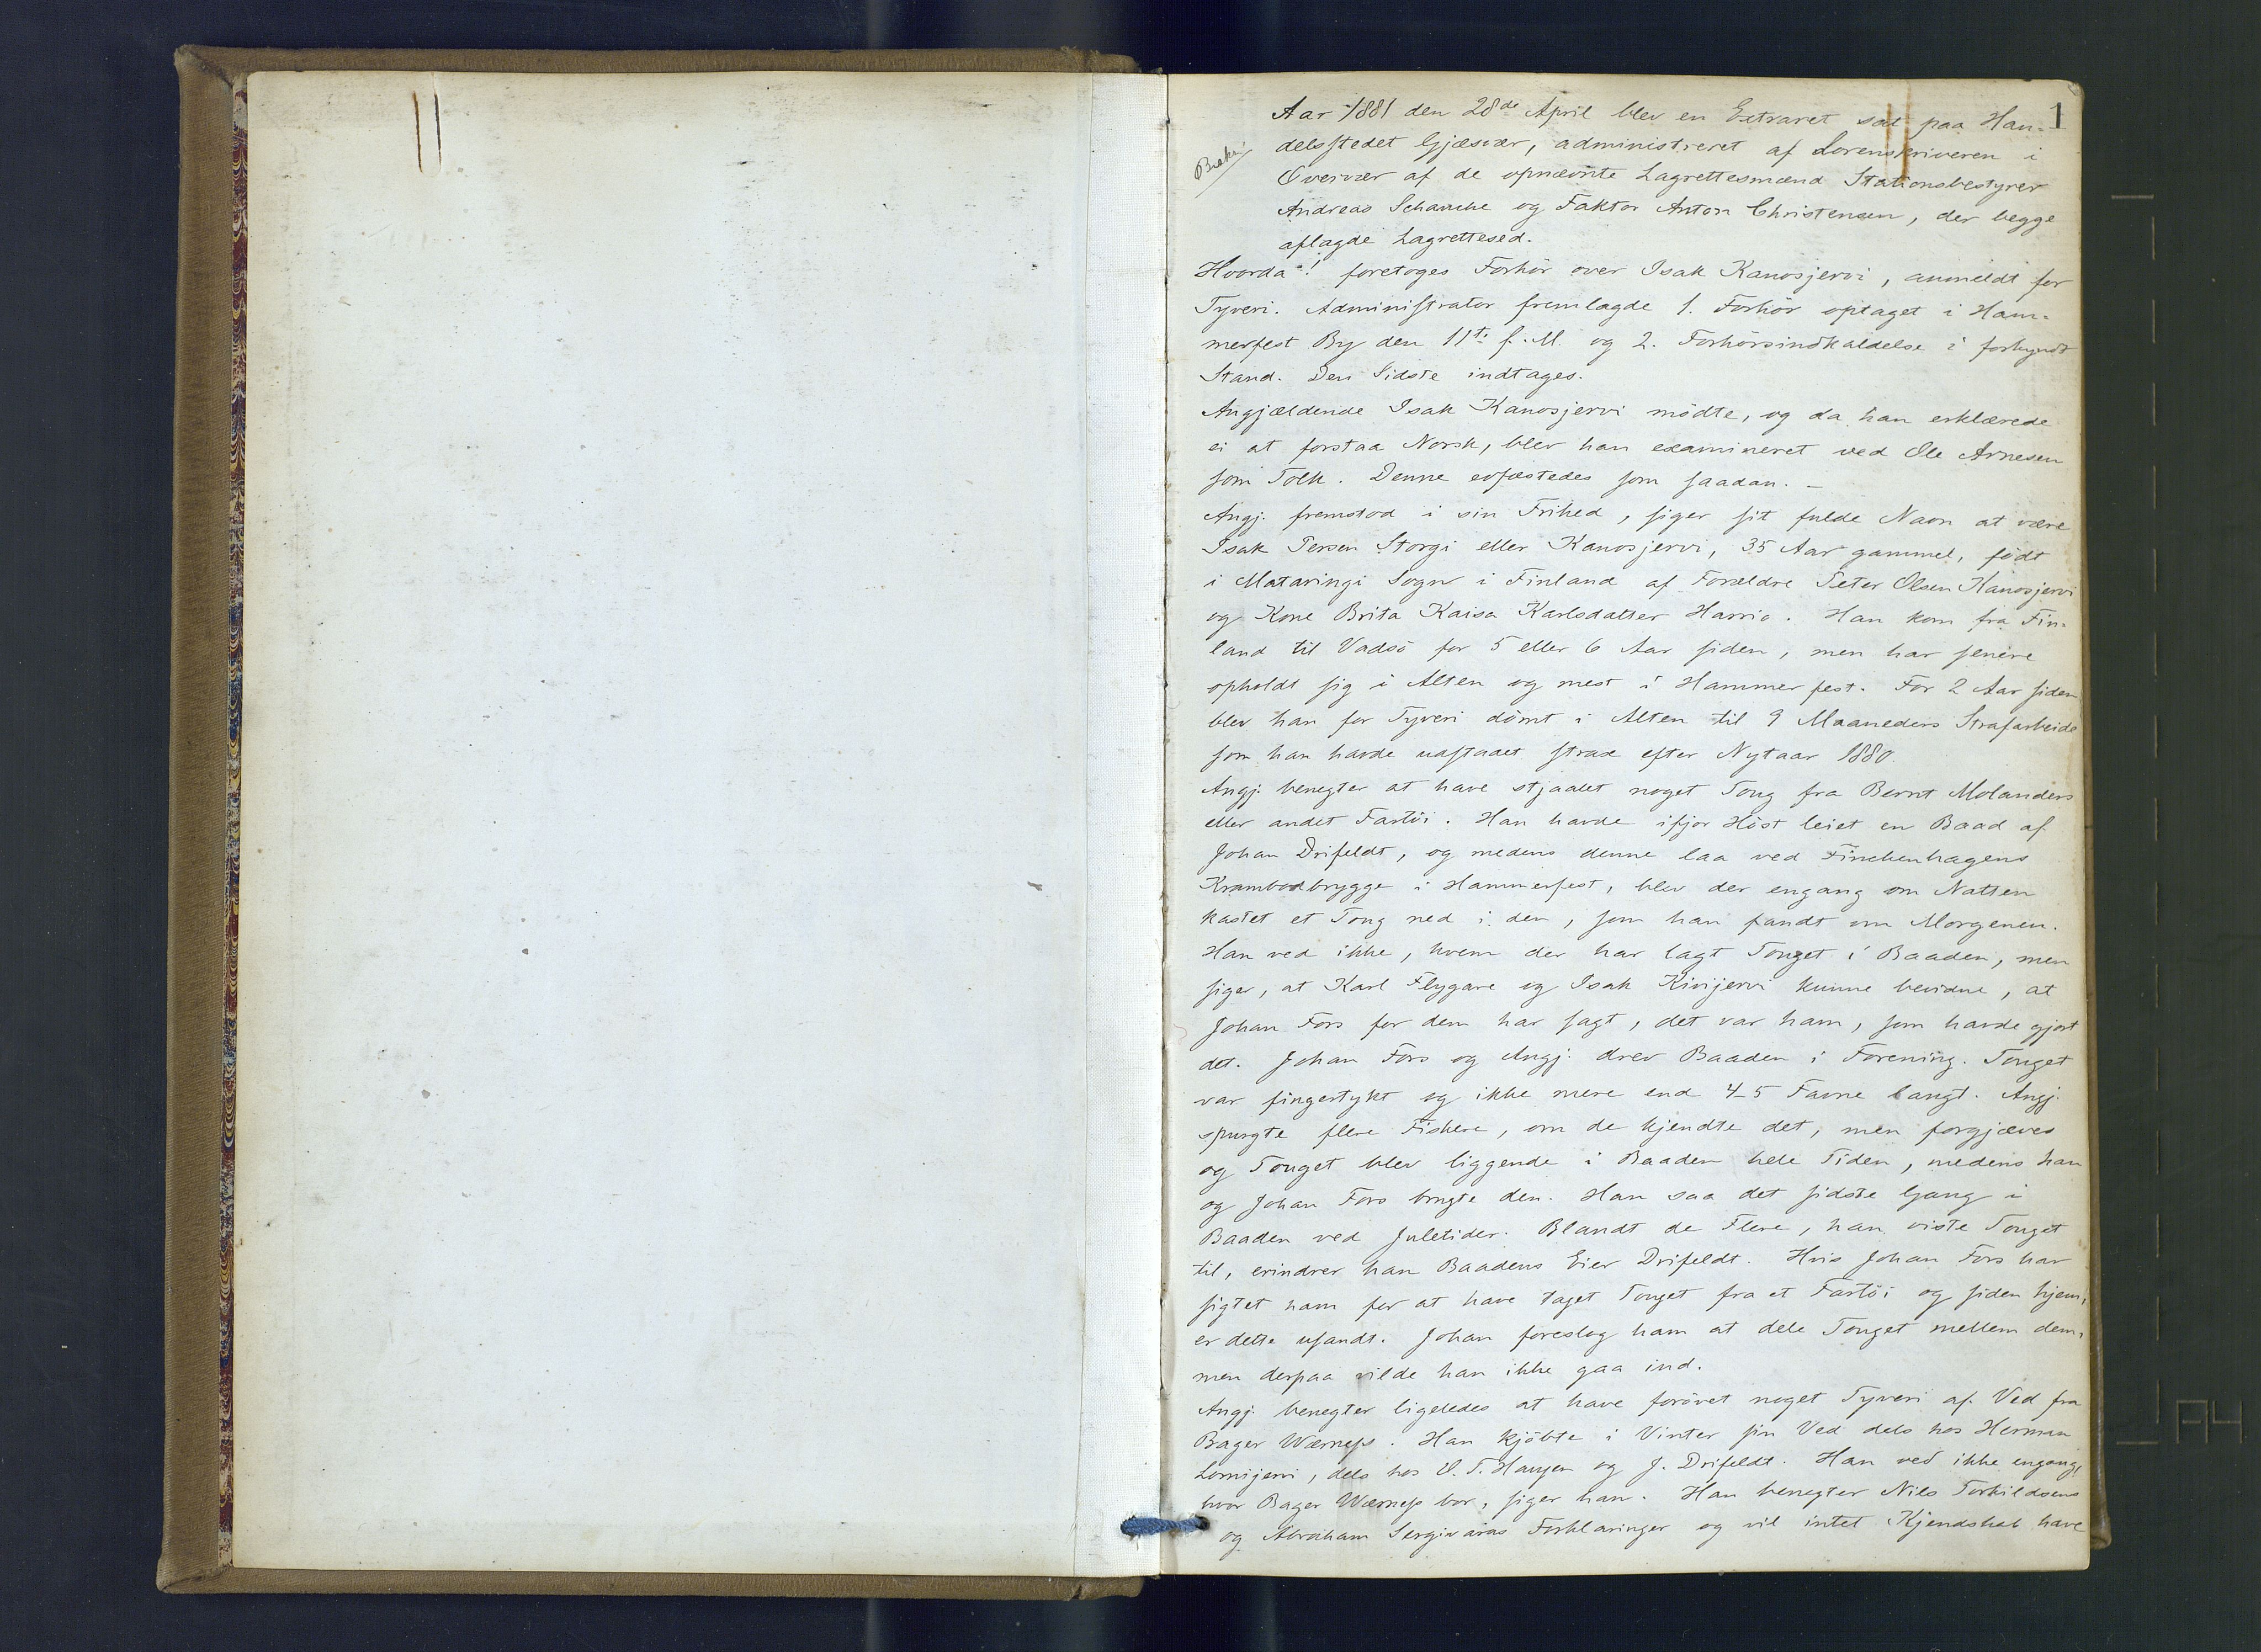 1
Aar 1881 den 28de April blev en Extraret sat paa Han-
delsstedet Gjæsvær, administreret af Sorenskriveren i
Overvær af de opnævnte Lagrettesmænd Stationsbestyrer
Andreas Schanche og Faktor Anton Christensen, der begge
aflagde Lagrettesed.
Hvorda! foretoges Forhör over Isak Kanosjervi, anmeldt for
Tyveri. Administrator fremlagde 1. Forhör optaget i Ham-
merfest By den 11te f. M. og 2. Forhörsindkaldelse i forkyndt
Stand. Den Sidste indtages.
Angjældende Isak Kanosjervi mödte, og da han erklærede
ei at forstaa Norsk, blev han examineret ved Ole Arnesen
som Tolk. Denne edfæstedes som saadan. –
Angj. fremstod i sin Frihed, siger sit fulde Navn at være
Isak Persen Storgi eller Kanosjervi, 35 Aar gammel, födt
i Mataringi Sogn i Finland af Forældre Peter Olsen Kanosjervi
og Kone Brita Kaisa Karlsdatter Harrio. Han kom fra Fin-
land til Vadsö for 5 eller 6 Aar siden, men har senere
opholdt sig i Alten og mest i Hammerfest. For 2 Aar siden
blev han for Tyveri dömt i Alten til 9 Maaneders Strafarbeide
som han havde udstaaet strax efter Nytaar 1880.
Angj. benegter at have stjaalet noget Toug fra Bernt Molanders
eller andet Fartöi. Han havde ifjor Höst leiet en Baad af
Johan Drifeldt, og medens denne laa ved Finckenhagens
Krambodbrygge i Hammerfest, blev der engang om Natten
kastet et Toug ned i den, som han fandt om Morgenen.
Han ved ikke, hvem der har lagt Touget i Baaden, men
siger, at Karl Flygare og Isak Kivijervi kunne bevidne, at
Johan Fors for dem har sagt, det var ham, som havde gjort
det. Johan Fors og Angj. drev Baaden i Forening. Touget
var fingertykt og ikke mere end 4-5 Favne langt. Angj.
spurgte flere Fiskere, om de kjendte det, men forgjæves
og Touget blev liggende i Baaden hele Tiden, medens han
og Johan Fors brugte den. Han saa det sidste Gang i
Baaden ved Juletider. Blandt de Flere, han viste Touget
til, erindrer han Baadens Eier Drifeldt. Hvis Johan Fors har
sigtet ham for at have taget Touget fra et Fartöi og siden hjem,
er dette usandt. Johan foreslog ham at dele Touget mellem dem,
men derpaa vilde han ikke gaa ind.
Angj. benegter ligeledes at have forövet noget Tyveri af Ved fra
Bager Wærness. Han kjöbte i Vinter sin Ved dels hos Herman
Lomijervi, dels hos O. T. Haugen og J. Drifeldt. Han ved ikke engang,
hvor Bager Wærness bor, siger han. Han benegter Nils Torkildsens
og Abraham Sergivaras Forklaringer og vil intet Kjendskab have